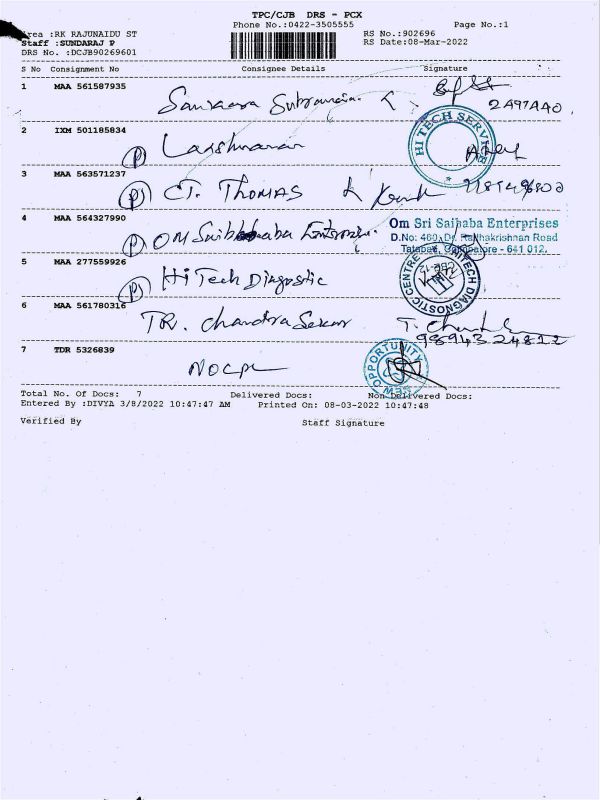 TPC/CJB DRS - PCX
Phone No.:0422-3505555
Page No.:1
Area :RK RAJUNAIDU ST
Staff :SUNDARAJ P
DRS No. :DCJB90269601
RS No.:902696
RS Date:08-Mar-2022
S No Consignment No Consignee Details Signature
1 MAA 561587935
Sankara Subramania.
2 IXM 501185834
(P) Lakshmanan
HI TECH SERVICE
3 MAA 563571237
(P) CT. THOMAS
4 MAA 564327990
(P) OM Saibaba Enterprises.
Om Sri Saibaba Enterprises
D.No: 460, Dr. Radhakrishnan Road
Tatabad, Coimbatore - 641 012.
5 MAA 277559926
(P) Hi Tech Diagnostic
HITECH DIAGNOSTIC CENTRE
CBE-12
6 MAA 561780316
TR. Chandra Sekar
9894324812
7 TDR 5326839
NOCPL
NEW OPPORTUNITY
Total No. Of Docs: 7 Delivered Docs: Non Delivered Docs:
Entered By :DIVYA 3/8/2022 10:47:47 AM Printed On: 08-03-2022 10:47:48
Verified By Staff Signature